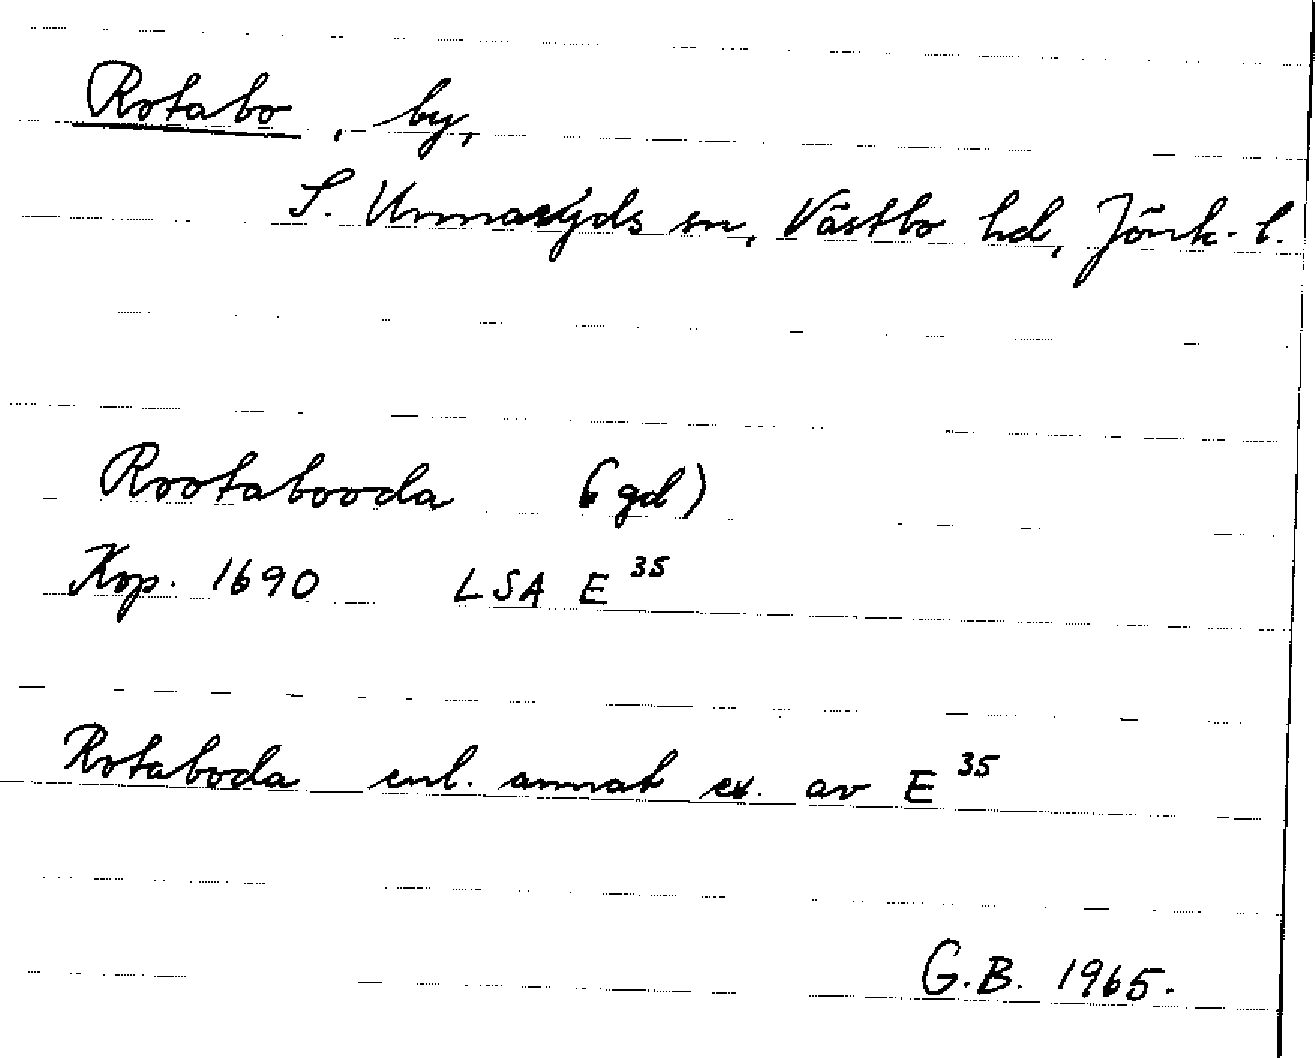 Rotabo, by,
S. Unnaryds sn, Västbo hd, Jönk. l.
Rootabooda (gd)
Kop. 1690 LSA E 35
Rotaboda enl. annat ex. av E 35
G.B. 1965.